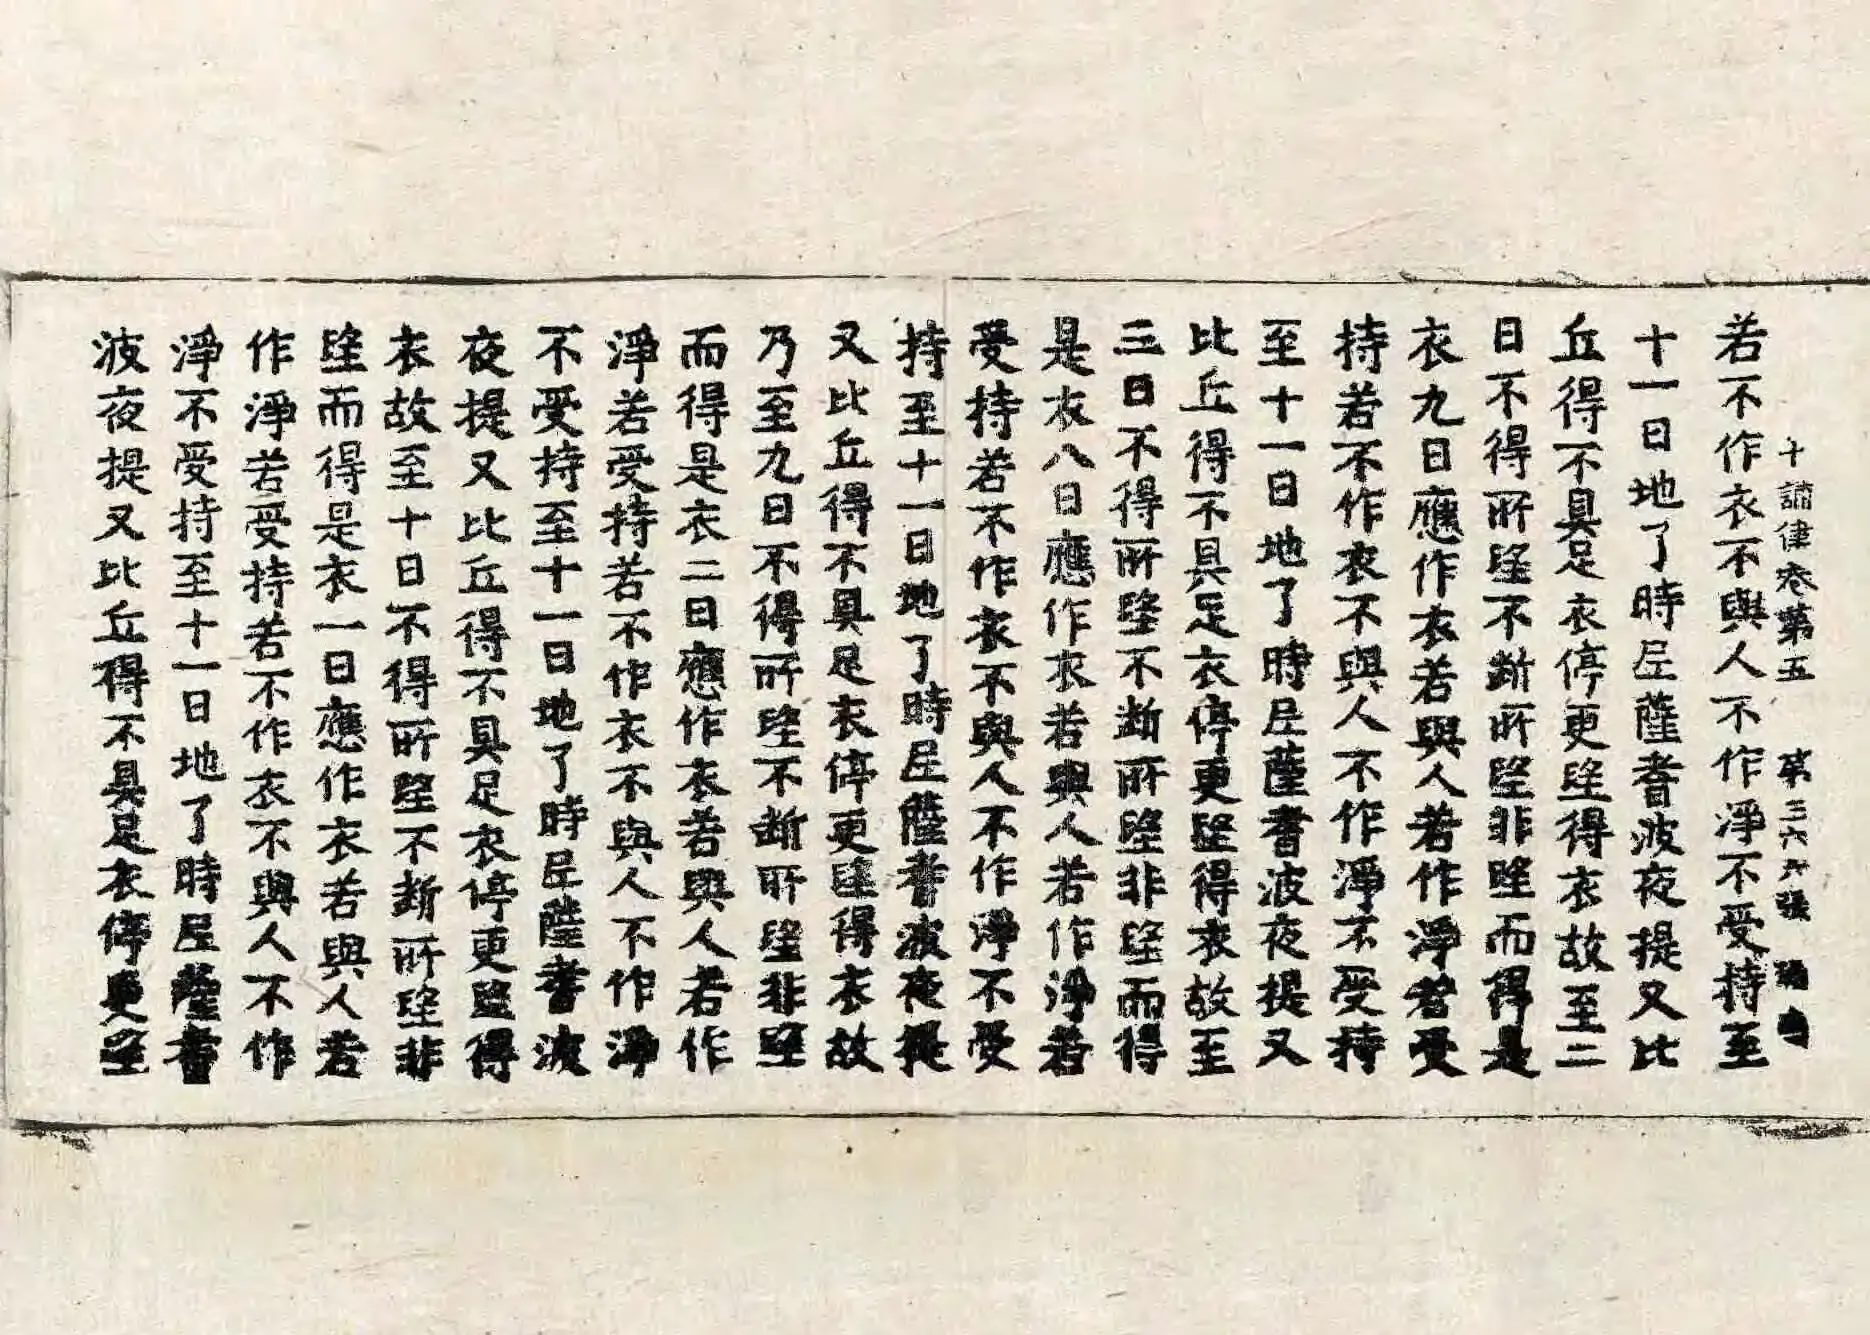 十誦律卷第五 第三六张
若不作衣不與人不作淨不受持至
十一日地了時尼薩耆波夜提又比
丘得不具足衣停更望得衣故至二
日不得所望不断所望非望而得是
衣九日應作衣若與人若作淨若受
持若不作衣不與人不作淨不受持
至十一日地了時尼薩耆波夜提又
比丘得不具足衣停更望得衣故至
三日不得所望不断所望非望而得
是衣八日應作衣若與人若作淨若
受持若不作衣不與人不作淨不受
持至十一日地了時尼薩耆波夜提
又比丘得不具足衣停更望得衣故
乃至九日不得所望不断所望非望
而得是衣二日應作衣若與人若作
淨若受持若不作衣不與人不作淨
不受持至十一日地了時尼薩耆波
夜提又比丘得不具足衣停更望得
衣故至十日不得所望不断所望非
望而得是衣一日應作衣若與人若
作淨若受持若不作衣不與人不作
淨不受持至十一日地了時尼薩耆
波夜提又比丘得不具足衣停更望